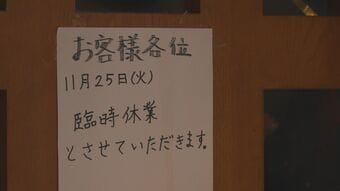 お客様各位
11月25日(火)
臨時休業
とさせていただきます。